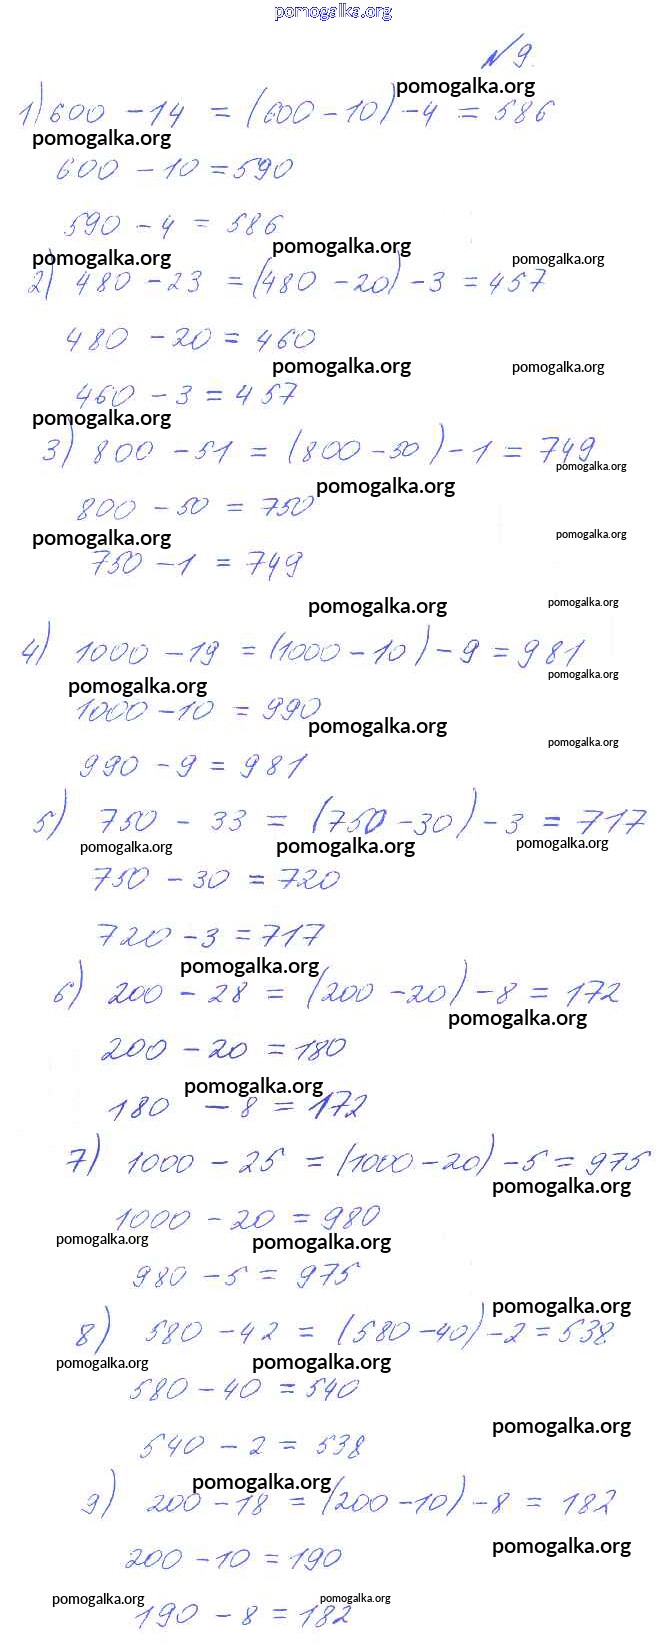 pomogalka.org
№ 9.
pomogalka.org
1) 600 - 14 = (600 - 10) - 4 = 586
pomogalka.org
600 - 10 = 590
590 - 4 = 586
pomogalka.org
pomogalka.org pomogalka.org
2) 480 - 23 = (480 - 20) - 3 = 457
480 - 20 = 460
pomogalka.org pomogalka.org
460 - 3 = 457
pomogalka.org
3) 800 - 51 = (800 - 50) - 1 = 749
pomogalka.org
pomogalka.org
800 - 50 = 750
pomogalka.org pomogalka.org
750 - 1 = 749
pomogalka.org pomogalka.org
4) 1000 - 19 = (1000 - 10) - 9 = 981
pomogalka.org pomogalka.org
1000 - 10 = 990
pomogalka.org pomogalka.org
990 - 9 = 981
5) 750 - 33 = (750 - 30) - 3 = 717
pomogalka.org pomogalka.org pomogalka.org
750 - 30 = 720
720 - 3 = 717
pomogalka.org
6) 200 - 28 = (200 - 20) - 8 = 172
pomogalka.org
200 - 20 = 180
pomogalka.org
180 - 8 = 172
7) 1000 - 25 = (1000 - 20) - 5 = 975
pomogalka.org
1000 - 20 = 980
pomogalka.org pomogalka.org
980 - 5 = 975
pomogalka.org
8) 580 - 42 = (580 - 40) - 2 = 538
pomogalka.org pomogalka.org
580 - 40 = 540
pomogalka.org
540 - 2 = 538
pomogalka.org
9) 200 - 18 = (200 - 10) - 8 = 182
pomogalka.org
200 - 10 = 190
pomogalka.org pomogalka.org
190 - 8 = 182